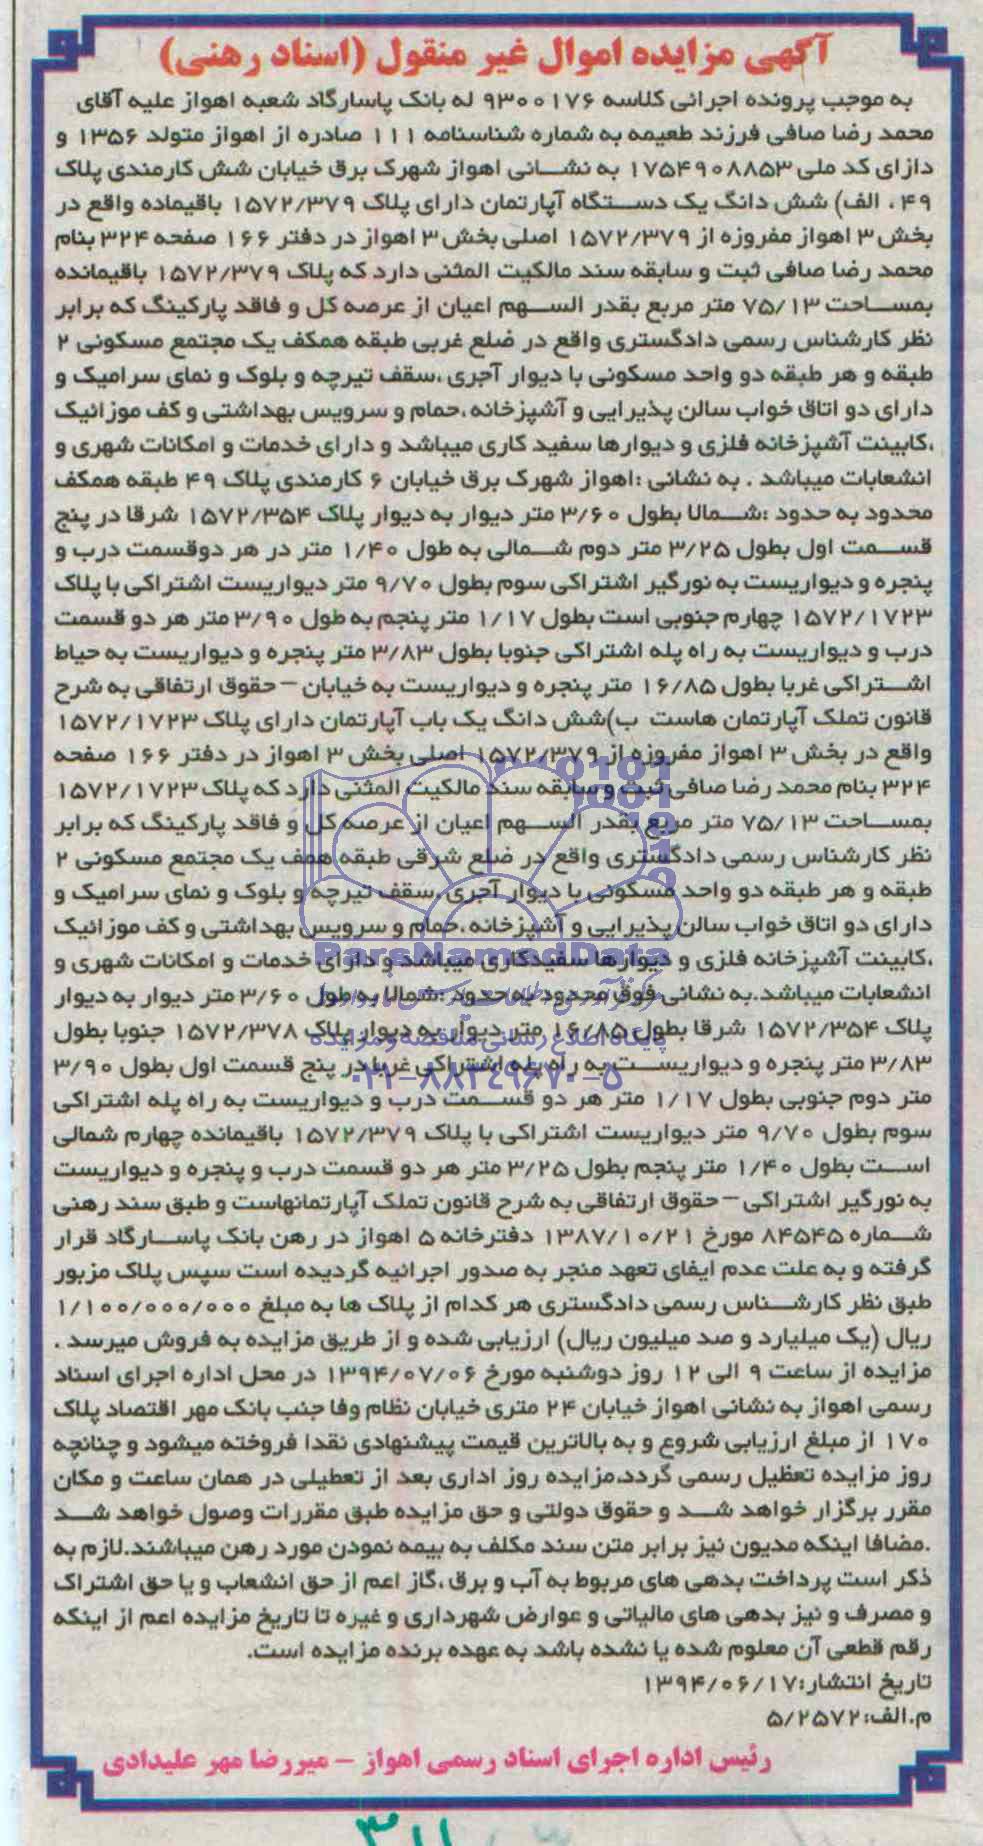 آگهی مزایده اموال غیر منقول (اسناد رهنی)
به موجب پرونده اجرائی کلاسه ۹۳۰۰۱۷۶ له بانک پاسارگاد شعبه اهواز علیه آقای
محمد رضا صافی فرزند طعیمه به شماره شناسنامه ۱۱۱ صادره از اهواز متولد ۱۳۵۶ و
دارای کد ملی ۱۷۵۴۹۰۸۸۵۳ به نشانی اهواز شهرک برق خیابان شش کارمندی پلاک
۴۹ ، الف) شش دانگ یک دستگاه آپارتمان دارای پلاک ۱۵۷۲/۳۷۹ باقیماده واقع در
بخش ۳ اهواز مفروزه از ۱۵۷۲/۳۷۹ اصلی بخش ۳ اهواز در دفتر ۱۶۶ صفحه ۳۲۴ بنام
محمد رضا صافی ثبت و سابقه سند مالکیت المثنی دارد که پلاک ۱۵۷۲/۳۷۹ باقیمانده
بمساحت ۷۵/۱۳ متر مربع بقدر السهم اعیان از عرصه کل و فاقد پارکینگ که برابر
نظر کارشناس رسمی دادگستری واقع در ضلع غربی طبقه همکف یک مجتمع مسکونی ۲
طبقه و هر طبقه دو واحد مسکونی با دیوار آجری ،سقف تیرچه و بلوک و نمای سرامیک و
دارای دو اتاق خواب سالن پذیرایی و آشپزخانه ،حمام و سرویس بهداشتی و کف موزائیک
،کابینت آشپزخانه فلزی و دیوارها سفید کاری میباشد و دارای خدمات و امکانات شهری و
انشعابات میباشد . به نشانی :اهواز شهرک برق خیابان ۶ کارمندی پلاک ۴۹ طبقه همکف
محدود به حدود :شمالا بطول ۳/۶۰ متر دیوار به دیوار پلاک ۱۵۷۲/۳۵۴ شرقا در پنج
قسمت اول بطول ۳/۲۵ متر دوم شمالی به طول ۱/۴۰ متر در هر دوقسمت درب و
پنجره و دیواریست به نورگیر اشتراکی سوم بطول ۹/۷۰ متر دیواریست اشتراکی با پلاک
۱۵۷۲/۱۷۲۳ چهارم جنوبی است بطول ۱/۱۷ متر پنجم به طول ۳/۹۰ متر هر دو قسمت
درب و دیواریست به راه پله اشتراکی جنوبا بطول ۳/۸۳ متر پنجره و دیواریست به حیاط
اشتراکی غربا بطول ۱۶/۸۵ متر پنجره و دیواریست به خیابان – حقوق ارتفاقی به شرح
قانون تملک آپارتمان هاست ب)شش دانگ یک باب آپارتمان دارای پلاک ۱۵۷۲/۱۷۲۳
واقع در بخش ۳ اهواز مفروزه از ۱۵۷۲/۳۷۹ اصلی بخش ۳ اهواز در دفتر ۱۶۶ صفحه
۳۲۴ بنام محمد رضا صافی ثبت و سابقه سند مالکیت المثنی دارد که پلاک ۱۵۷۲/۱۷۲۳
بمساحت ۷۵/۱۳ متر مربع بقدر السهم اعیان از عرصه کل و فاقد پارکینگ که برابر
نظر کارشناس رسمی دادگستری واقع در ضلع شرقی طبقه همف یک مجتمع مسکونی ۲
طبقه و هر طبقه دو واحد مسکونی با دیوار آجری ،سقف تیرچه و بلوک و نمای سرامیک و
دارای دو اتاق خواب سالن پذیرایی و آشپزخانه ،حمام و سرویس بهداشتی و کف موزائیک
ParsNamadData
،کابینت آشپزخانه فلزی و دیوارها سفیدکاری میباشد و دارای خدمات و امکانات شهری و
انشعابات میباشد.به نشانی فوق محدود به حدود :شمالا به طول ۳/۶۰ متر دیوار به دیوار
پلاک ۱۵۷۲/۳۵۴ شرقا بطول ۱۶/۸۵ متر دیوار به دیوار پلاک ۱۵۷۲/۳۷۸ جنوبا بطول
پایگاه اطلاع رسانی مناقصه و مزایده
۳/۸۳ متر پنجره و دیواریست به راه پله اشتراکی غربا در پنج قسمت اول بطول ۳/۹۰
۰۲۱-۸۸۳۴۹۶۷۰-۵
متر دوم جنوبی بطول ۱/۱۷ متر هر دو قسمت درب و دیواریست به راه پله اشتراکی
سوم بطول ۹/۷۰ متر دیواریست اشتراکی با پلاک ۱۵۷۲/۳۷۹ باقیمانده چهارم شمالی
است بطول ۱/۴۰ متر پنجم بطول ۳/۲۵ متر هر دو قسمت درب و پنجره و دیواریست
به نورگیر اشتراکی – حقوق ارتفاقی به شرح قانون تملک آپارتمانهاست و طبق سند رهنی
شماره ۸۴۵۴۵ مورخ ۱۳۸۷/۱۰/۲۱ دفترخانه ۵ اهواز در رهن بانک پاسارگاد قرار
گرفته و به علت عدم ایفای تعهد منجر به صدور اجرائیه گردیده است سپس پلاک مزبور
طبق نظر کارشناس رسمی دادگستری هر کدام از پلاک ها به مبلغ ۱/۱۰۰/۰۰۰/۰۰۰
ریال (یک میلیارد و صد میلیون ریال) ارزیابی شده و از طریق مزایده به فروش میرسد .
مزایده از ساعت ۹ الی ۱۲ روز دوشنبه مورخ ۱۳۹۴/۰۷/۰۶ در محل اداره اجرای اسناد
رسمی اهواز به نشانی اهواز خیابان ۲۴ متری خیابان نظام وفا جنب بانک مهر اقتصاد پلاک
۱۷۰ از مبلغ ارزیابی شروع و به بالاترین قیمت پیشنهادی نقدا فروخته میشود و چنانچه
روز مزایده تعظیل رسمی گردد،مزایده روز اداری بعد از تعطیلی در همان ساعت و مکان
مقرر برگزار خواهد شد و حقوق دولتی و حق مزایده طبق مقررات وصول خواهد شد
.مضافا اینکه مدیون نیز برابر متن سند مکلف به بیمه نمودن مورد رهن میباشند.لازم به
ذکر است پرداخت بدهی های مربوط به آب و برق ،گاز اعم از حق انشعاب و یا حق اشتراک
و مصرف و نیز بدهی های مالیاتی و عوارض شهرداری و غیره تا تاریخ مزایده اعم از اینکه
رقم قطعی آن معلوم شده یا نشده باشد به عهده برنده مزایده است.
تاریخ انتشار:۱۳۹۴/۰۶/۱۷
م.الف:۵/۲۵۷۲
رئیس اداره اجرای اسناد رسمی اهواز – میررضا مهر علیدادی
۳۱۱